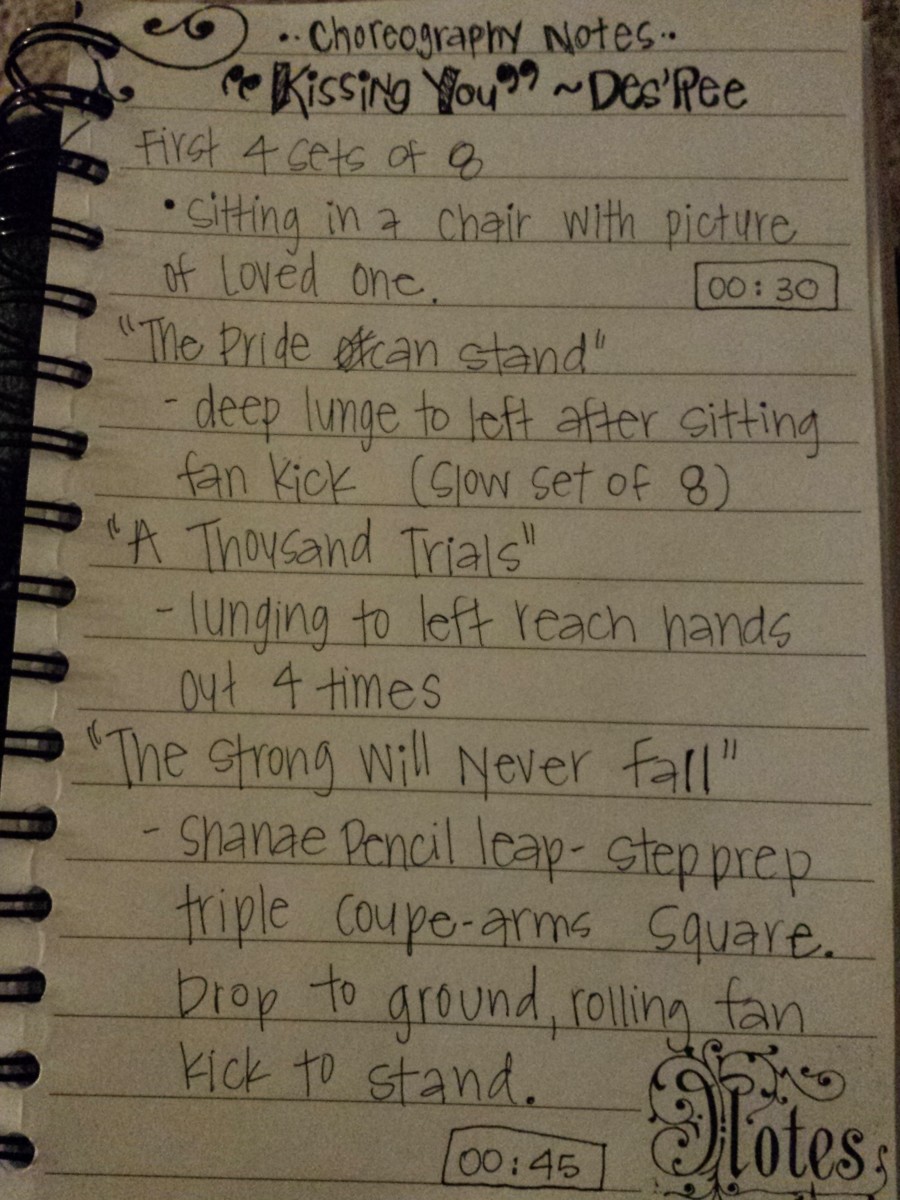 ··Choreography Notes··
"Kissing You" ~Des'Ree
First 4 sets of 8
•sitting in a chair with picture
of Loved one.
00:30
"The Pride can stand"
- deep lunge to left after sitting
fan kick (slow set of 8)
"A Thousand Trials"
- lunging to left reach hands
out 4 times
"The strong will Never fall"
- Shanae Pencil leap- step prep
triple coupe-arms square.
Drop to ground, rolling fan
kick to stand.
00:45
Notes